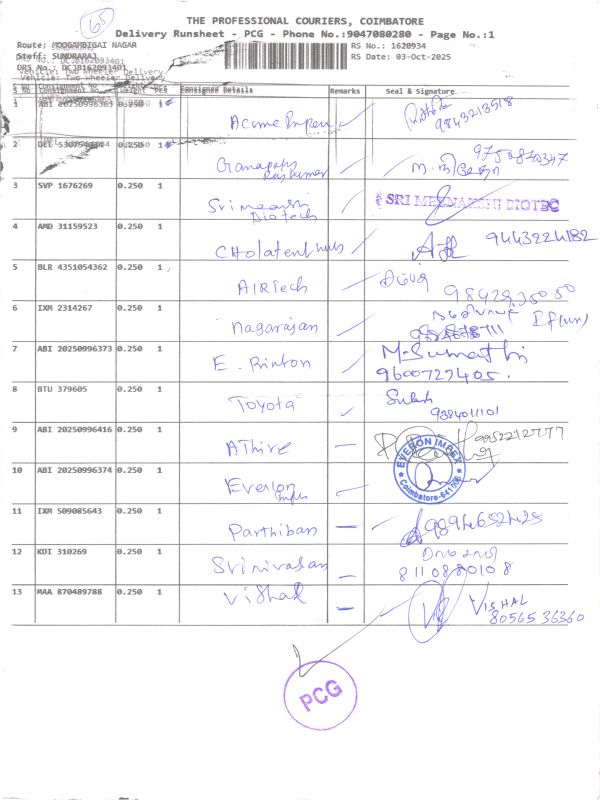 65
THE PROFESSIONAL COURIERS, COIMBATORE
Delivery Runsheet - PCG - Phone No.:9047080280 - Page No.:1
Route: MOOGAMBIGAI NAGAR RS No.: 1620934
Staff: SUNDRARAJ RS Date: 03-Oct-2025
DRS No.: DCJB162093401
Vehicle: Two Wheeler Delivery
S No Consignment No Weight PCS Consignee Details Remarks Seal & Signature
1 ABI 20250996363 0.250 1 9843213518
2 0.250 1 Ganapathy Rajkumar
3 SVP 1676269 0.250 1 Srimeenakshi Biotech SRI MEENAKSHI BIOTEC
4 AMD 31159523 0.250 1 9443224182
5 BLR 4351054362 0.250 1 AIRTech
6 IXM 2314267 0.250 1 Nagarajan
7 ABI 20250996373 0.250 1 E. Printon M. Sumathi
9600727405.
8 BTU 379605 0.250 1 Toyota
9384011101
9 ABI 20250996416 0.250 1 Athire 9952212777
10 ABI 20250996374 0.250 1 Everon Impex EVERON IMPEX Coimbatore-641006
11 IXM 509085643 0.250 1 Parthiban 9894652425
12 KDI 310269 0.250 1 Srinivasan
8110880108
13 MAA 870489788 0.250 1 Vishal VISHAL
8056536360
PCG